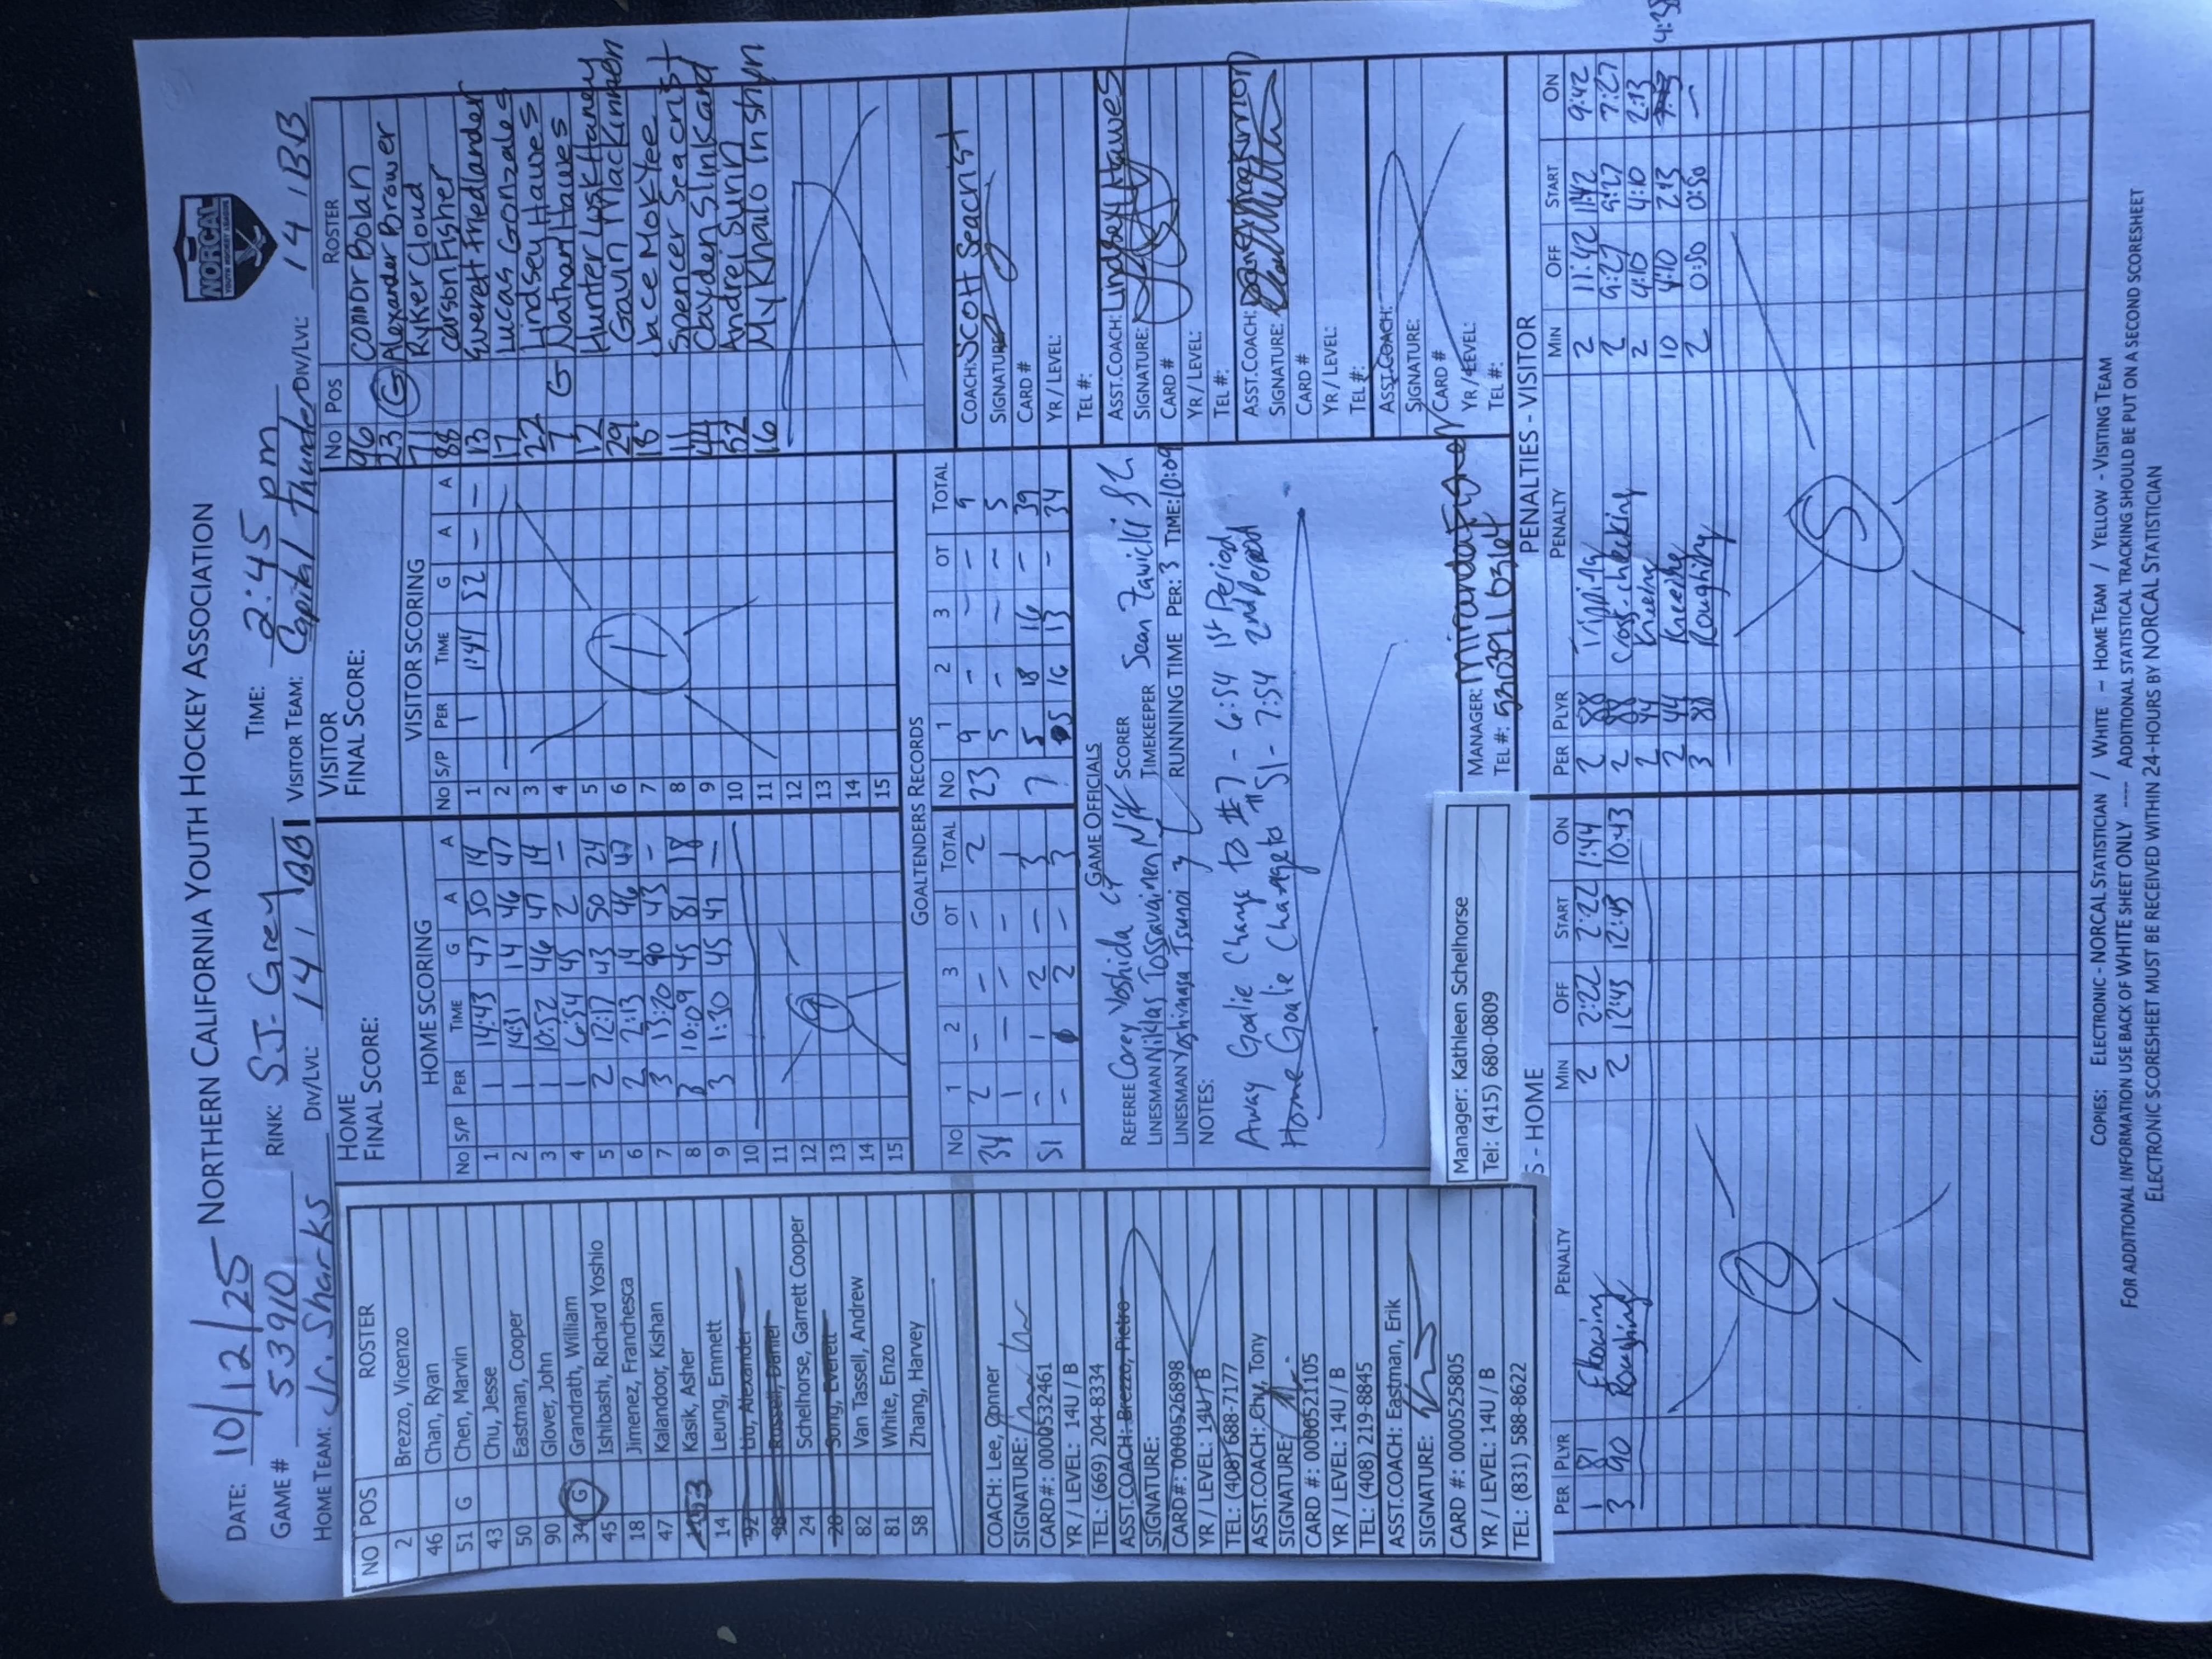 DATE: 10/12/25 NORTHERN CALIFORNIA YOUTH HOCKEY ASSOCIATION
NORCAL
YOUTH HOCKEY LEAGUE
GAME # 53910 RINK: SJ-Grey TIME: 2:45 pm
HOME TEAM: Jr. Sharks DIV/LVL: 14 / BB VISITOR TEAM: Capital Thunder DIV/LVL: 14 / BB
NO POS ROSTER
2 Brezzo, Vicenzo
46 Chan, Ryan
51 G Chen, Marvin
43 Chu, Jesse
50 Eastman, Cooper
90 Glover, John
34 G Grandrath, William
45 Ishibashi, Richard Yoshio
18 Jimenez, Franchesca
47 Kalandoor, Kishan
53 Kasik, Asher
14 Leung, Emmett
92 Liu, Alexander
98 Russell, Daniel
24 Schelhorse, Garrett Cooper
28 Song, Everett
82 Van Tassell, Andrew
81 White, Enzo
58 Zhang, Harvey
COACH: Lee, Conner
SIGNATURE:
CARD#: 000532461
YR / LEVEL: 14U / B
TEL: (669) 204-8334
ASST.COACH: Brezzo, Pietro
SIGNATURE:
CARD#: 000526898
YR / LEVEL: 14U / B
TEL: (408) 688-7177
ASST.COACH: Chu, Tony
SIGNATURE:
CARD #: 000521105
YR / LEVEL: 14U / B
TEL: (408) 219-8845
ASST.COACH: Eastman, Erik
SIGNATURE:
CARD #: 000525805
YR / LEVEL: 14U / B
TEL: (831) 588-8622
HOME
FINAL SCORE:
HOME SCORING
NO S/P PER TIME G A A
1 1 14:43 47 50 14
2 1 14:31 14 46 47
3 1 10:52 46 47 14
4 1 6:54 45 2 —
5 2 12:17 43 50 24
6 2 2:13 14 46 47
7 3 13:20 90 43 -
8 3 10:09 45 81 18
9 3 1:30 45 47 —
10
11
12
13
14
15
9
VISITOR
FINAL SCORE:
VISITOR SCORING
NO S/P PER TIME G A A
1 1 1:44 52 — —
2
3
4
5
6
7
8
9
10
11
12
13
14
15
1
NO POS ROSTER
96 Connor Bolan
23 G Alexander Brower
71 Ryker Cloud
88 Carson Fisher
13 Everett Friedlander
17 Lucas Gonzales
22 Lindsey Hawes
7 G Nathan Hawes
12 Hunter Lusk Haney
29 Gavin Mackinnon
18 Jace Mok Yee
11 Spencer Seacrist
44 Clayden Slinkard
52 Andrei Sunin
16 Mykhailo Inshyn
GOALTENDERS RECORDS
NO 1 2 3 OT TOTAL NO 1 2 3 OT TOTAL
34 2 — — — 2 23 9 - - - 9
1 — — — 1 5 - - - 5
51 - 1 2 — 3 7 5 18 16 - 39
— 2 — 3 5 16 13 - 34
GAME OFFICIALS
REFEREE Corey Yoshida SCORER Sean Zawicki
LINESMAN Niklas Tossavainen TIMEKEEPER
LINESMAN Yoshimasa Tsunoi RUNNING TIME PER: 3 TIME: 10:09
NOTES:
Away Goalie Change to #7 - 6:54 1st Period
Home Goalie Change to #51 - 7:54 2nd Period
COACH: Scott Seacrist
SIGNATURE
CARD #
YR / LEVEL:
TEL #:
ASST.COACH: Lindsey Hawes
SIGNATURE:
CARD #
YR / LEVEL:
TEL #:
ASST.COACH:
SIGNATURE:
CARD #
YR / LEVEL:
TEL #:
ASST.COACH:
SIGNATURE:
CARD #
YR / LEVEL:
TEL #:
Manager: Kathleen Schelhorse
Tel: (415) 680-0809
MANAGER: Miranda
TEL #:
S - HOME
PER PLYR PENALTY MIN OFF START ON
1 81 Elbowing 2 2:22 2:22 1:44
3 90 Roughing 2 12:43 12:43 10:43
2
PENALTIES - VISITOR
PER PLYR PENALTY MIN OFF START ON
2 88 Tripping 2 11:42 11:42 9:42
2 88 Cross-checking 2 9:27 9:27 7:27
2 44 Kneeing 2 4:10 4:10 2:13
2 44 Kneeing 10 4:10 2:13
3 88 Roughing 2 0:50 0:50 —
5
COPIES: ELECTRONIC - NORCAL STATISTICIAN / WHITE – HOME TEAM / YELLOW - VISITING TEAM
FOR ADDITIONAL INFORMATION USE BACK OF WHITE SHEET ONLY ---- ADDITIONAL STATISTICAL TRACKING SHOULD BE PUT ON A SECOND SCORESHEET
ELECTRONIC SCORESHEET MUST BE RECEIVED WITHIN 24-HOURS BY NORCAL STATISTICIAN